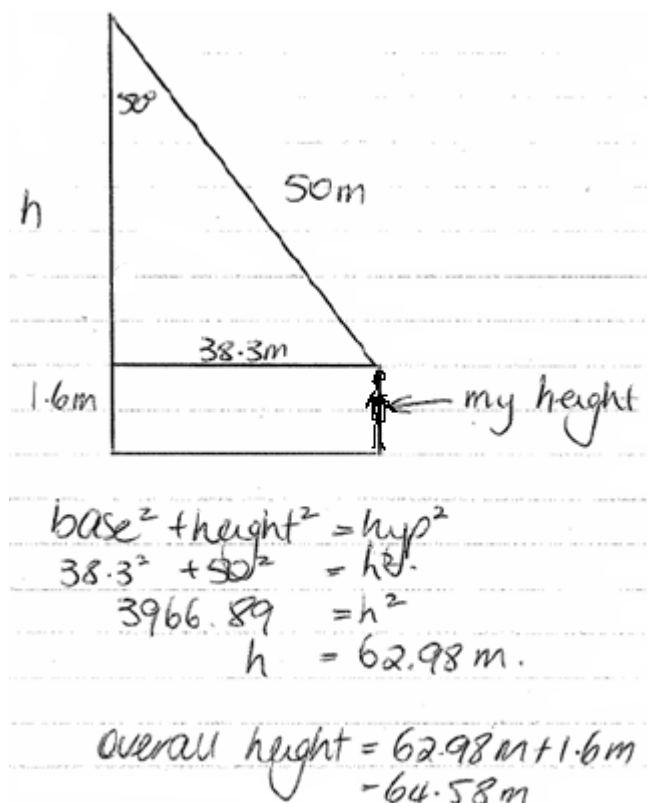 50°
50m
h
38.3m
1.6m
my height
base² + height² = hyp²
38.3² + 50² = h².
3966.89 = h²
h = 62.98 m.
overall height = 62.98m + 1.6m
= 64.58m